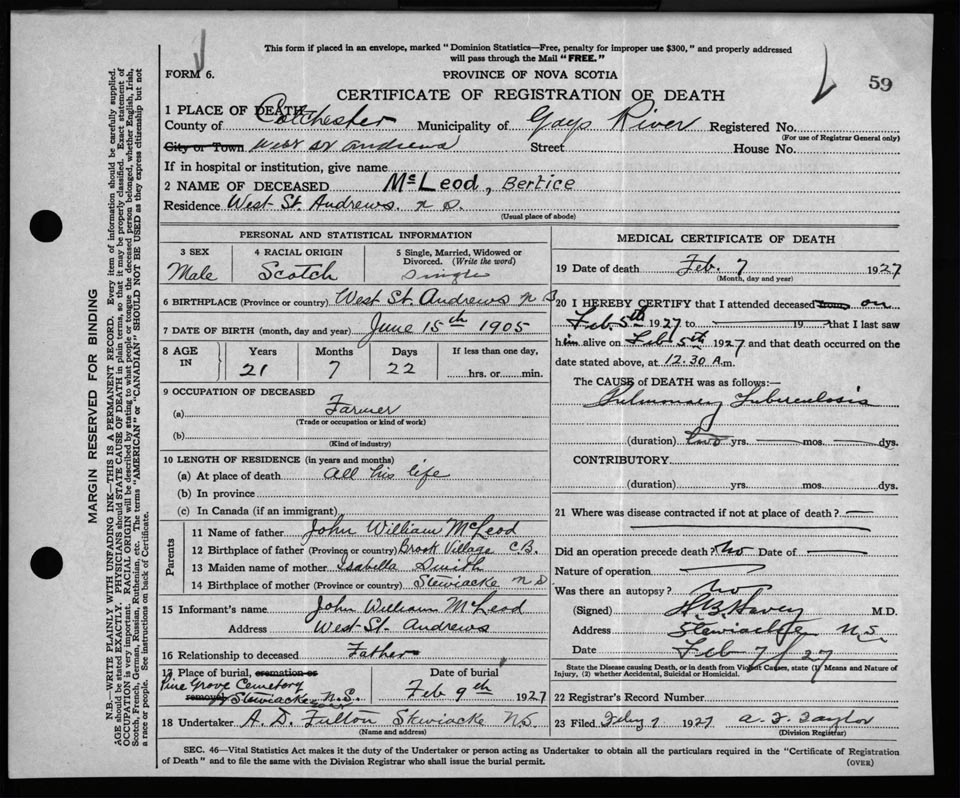 This form if placed in an envelope, marked "Dominion Statistics—Free, penalty for improper use $300," and properly addressed
will pass through the Mail "FREE."
FORM 6.
PROVINCE OF NOVA SCOTIA
59
CERTIFICATE OF REGISTRATION OF DEATH
1 PLACE OF DEATH
County of Colchester Municipality of Gays River Registered No.
(For use of Registrar General only)
City or Town West St Andrews Street House No.
If in hospital or institution, give name
2 NAME OF DECEASED McLeod, Bertice
Residence West St. Andrews. N S.
(Usual place of abode)
PERSONAL AND STATISTICAL INFORMATION
3 SEX 4 RACIAL ORIGIN 5 Single, Married, Widowed or
Divorced. (Write the word)
Male Scotch Single
6 BIRTHPLACE (Province or country) West St. Andrews N S
7 DATE OF BIRTH (month, day and year) June 15th 1905
8 AGE IN Years Months Days If less than one day,
21 7 22 hrs. or min.
9 OCCUPATION OF DECEASED
(a) Farmer
(Trade or occupation or kind of work)
(b)
(Kind of industry)
10 LENGTH OF RESIDENCE (in years and months)
(a) At place of death all his life
(b) In province
(c) In Canada (if an immigrant)
Parents
11 Name of father John William McLeod
12 Birthplace of father (Province or country) Brook Village C.B.
13 Maiden name of mother Isabella Smith
14 Birthplace of mother (Province or country) Stewiacke N S
15 Informant's name John William McLeod
Address West St. Andrews
16 Relationship to deceased Father
17 Place of burial, cremation or Date of burial
Pine Grove Cemetery
removal Stewiacke N.S. Feb 9th 1927
18 Undertaker A. D. Fulton Stewiacke N.S.
(Name and address)
MEDICAL CERTIFICATE OF DEATH
19 Date of death Feb. 7 1927
(Month, day and year)
20 I HEREBY CERTIFY that I attended deceased from on
Feb. 5th 1927 to 19 that I last saw
him alive on Feb 5th 1927 and that death occurred on the
date stated above, at 12.30 A.m.
The CAUSE of DEATH was as follows:—
Pulmonary Tuberculosis
(duration) two yrs. mos. dys.
CONTRIBUTORY
(duration) yrs. mos. dys.
21 Where was disease contracted if not at place of death?
Did an operation precede death? No Date of
Nature of operation
Was there an autopsy? No
(Signed) M.D.
Address Stewiacke N.S.
Date Feb 7/27
State the Disease causing Death, or in death from Violent Causes, state (1) Means and Nature of
Injury, (2) whether Accidental, Suicidal or Homicidal.
22 Registrar's Record Number
23 Filed Feby 7 1927 A. F. Taylor
(Division Registrar)
SEC. 46—Vital Statistics Act makes it the duty of the Undertaker or person acting as Undertaker to obtain all the particulars required in the "Certificate of Registration
of Death" and to file the same with the Division Registrar who shall issue the burial permit.
(OVER)
MARGIN RESERVED FOR BINDING
N.B.—WRITE PLAINLY WITH UNFADING INK—THIS IS A PERMANENT RECORD. Every item of information should be carefully supplied.
AGE should be stated EXACTLY. PHYSICIANS should STATE CAUSE OF DEATH in plain terms, so that it may be properly classified. Exact statement of
OCCUPATION is very important. RACIAL ORIGIN will be described by stating to what people or tongue the deceased person belonged, whether English, Irish,
Scotch, French, German, Russian, Ruthenian, etc. The terms "AMERICAN" or "CANADIAN" SHOULD NOT BE USED as they express citizenship but not
a race or people. See instructions on back of Certificate.